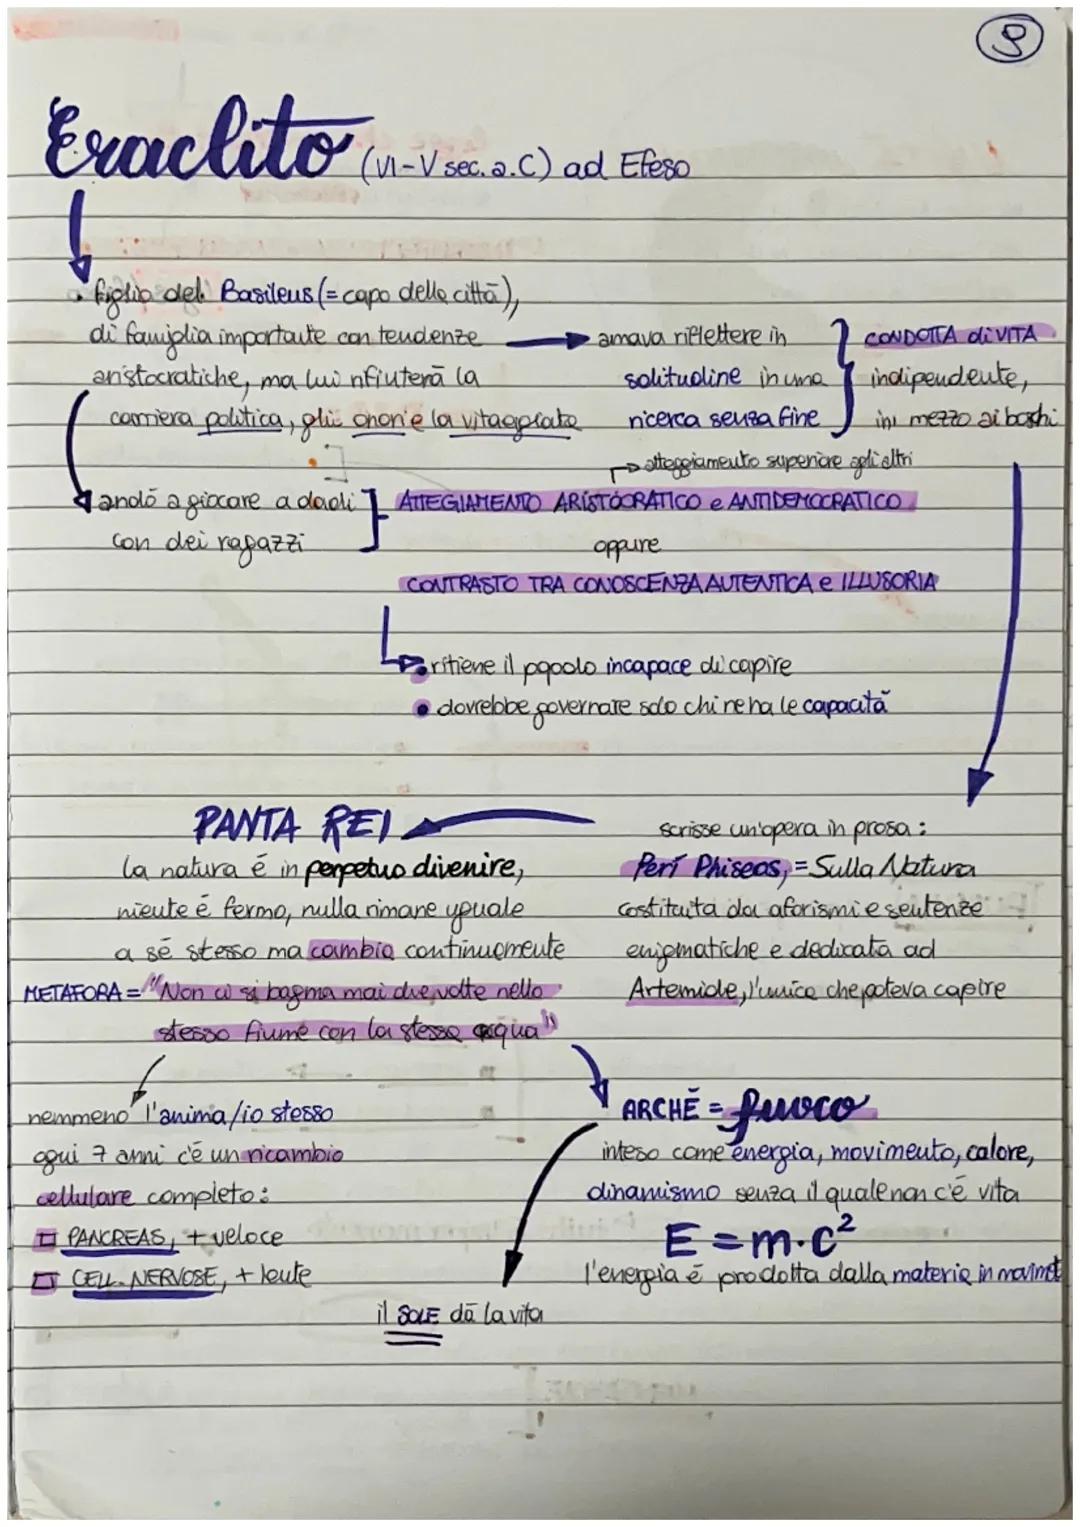 9
Eraclito (VI-V sec. a.C) ad Efeso
• figlio del Basileus (= capo della città),
di famiglia importante con tendenze
aristocratiche, ma lui rifiuterà la
carriera politica, gli onori e la vita agiata
amava riflettere in
solitudine in una
ricerca senza fine
CONDOTTA di VITA
indipendente,
in mezzo ai boschi
andò a giocare a dadi
con dei ragazzi
atteggiamento superiore agli altri
ATTEGIAMENTO ARISTOCRATICO e ANTIDEMOCRATICO
oppure
CONTRASTO TRA CONOSCENZA AUTENTICA e ILLUSORIA
• ritiene il popolo incapace di capire
• dovrebbe governare solo chi ne ha le capacità
scrisse un'opera in prosa:
Perì Phiseos, = Sulla Natura
costituita da aforismi e sentenze
enigmatiche e dedicata ad
Artemide, l'unica che poteva capire
PANTA REI
la natura é in perpetuo divenire,
niente é fermo, nulla rimane uguale
a sé stesso ma cambia continuamente
METAFORA = "Non ci si bagna mai due volte nello
stesso fiume con la stessa acqua"
nemmeno l'anima/io stesso
ogni 7 anni c'é un ricambio
cellulare completo:
PANCREAS, + veloce
CELL. NERVOSE, + lente
ARCHÉ = fuoco
inteso come energia, movimento, calore,
dinamismo senza il quale non c'é vita
E = m·c²
l'energia é prodotta dalla materia in movimet
il SOLE dà la vita